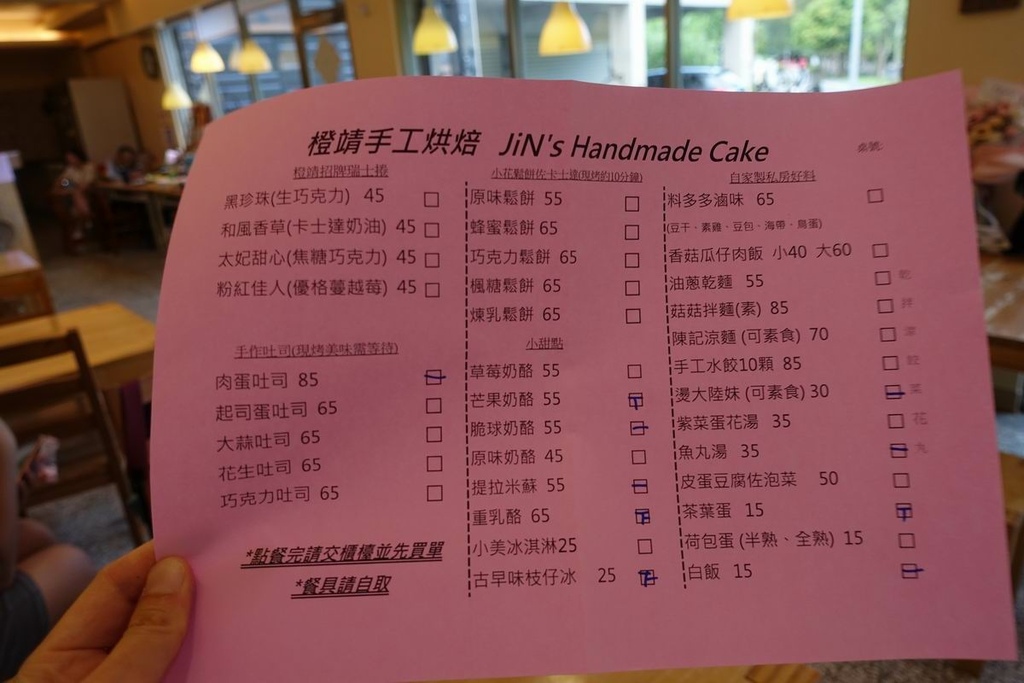 橙靖手工烘焙 JiN's Handmade Cake
桌號:
橙靖招牌瑞士捲
黑珍珠(生巧克力) 45
和風香草(卡士達奶油) 45
太妃甜心(焦糖巧克力) 45
粉紅佳人(優格蔓越莓) 45
手作吐司(現烤美味需等待)
肉蛋吐司 85
起司蛋吐司 65
大蒜吐司 65
花生吐司 65
巧克力吐司 65
*點餐完請交櫃檯並先買單
*餐具請自取
小花鬆餅佐卡士達(現烤約10分鐘)
原味鬆餅 55
蜂蜜鬆餅 65
巧克力鬆餅 65
楓糖鬆餅 65
煉乳鬆餅 65
小甜點
草莓奶酪 55
芒果奶酪 55
脆球奶酪 55
原味奶酪 45
提拉米蘇 55
重乳酪 65
小美冰淇淋25
古早味枝仔冰 25
自家製私房好料
料多多滷味 65
(豆干、素雞、豆包、海帶、鳥蛋)
香菇瓜仔肉飯 小40 大60
油蔥乾麵 55 乾
菇菇拌麵(素) 85 拌
陳記涼麵 (可素食) 70 涼
手工水餃10顆 85 餃
燙大陸妹 (可素食) 30 菜
紫菜蛋花湯 35 花
魚丸湯 35 丸
皮蛋豆腐佐泡菜 50
茶葉蛋 15
荷包蛋 (半熟、全熟) 15
白飯 15